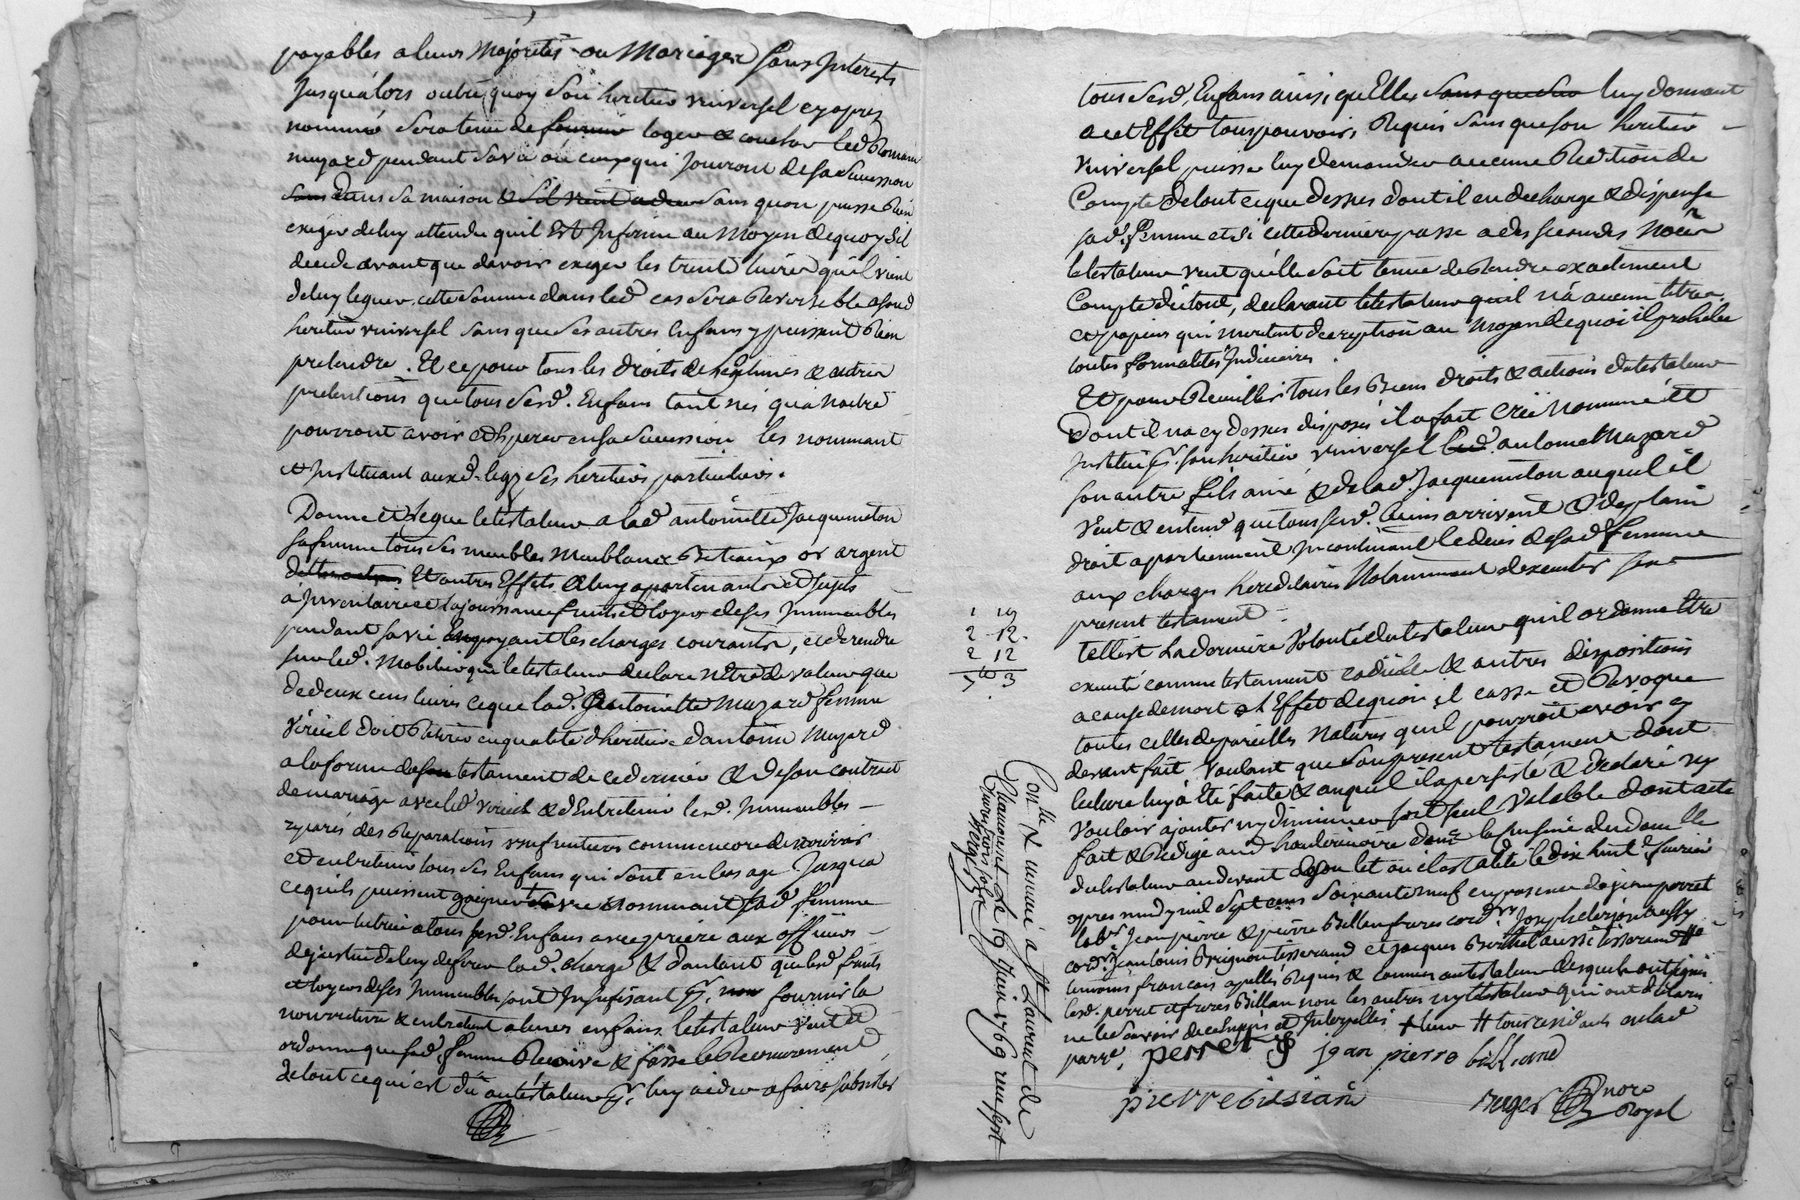 payables a leurs Majorités ou Mariages sans Interests
Jusqu'alors outre quoy son heritier universel cy apres
nommé sera tenu de fournir loger & coucher led Romain
mazard pendant sa vie ou ceux qui Jouiront de sa sucession
sans dans sa maison & sans quon puisse Rien
exiger de luy attendu quil Est Infirme au Moyen de quoy sil
decede avant que davoir exiger les trente livres quil vient
de luy leguer cette somme dans led cas sera Reversible a sond
heritier universel sans que ses autres Enfans y puissent Rien
pretendre. Et ce pour tous les droits de legitimes & autres
pretentions que tous sesd. Enfans tant nés qu'a Naitre
pourront avoir & esperer en sa sucession les nommant
et Instituant auxd. legz ses heritiers particuliers.
Donne et legue le testateur a lad antoinette Jacquemeton
sa femme tous ses meubles Meublans Bestiaux or argent
Et autres Effets a luy apartenants et sujets
a Inventaire & la jouissance fruits et loyers de ses Immeubles
pendant sa vie En payant les charges courantes, et de rendre
sur led. Mobilier que le testateur declare n'être de valeur que
de deux cens livres ce que lad. antoinette Mazard femme
Veriel doit Retirer en qualité d'heritiere d'antoine Mazard
a la forme de son testament de ce dernier & de son contract
de mariage avec led Veriel & d'Entretenir lesd. Immeubles
reparés des Reparations usufruitieres comm'encore de nourrir
et entretenir tous ses Enfans qui sont en bas age Jusqu'a
ce quils puissent gaigner leur vie nommant sad. femme
pour tutrice a tous sesd. Enfans avec priere aux officiers
de justice de luy deferer lad. charge & d'autant que lesd fruits
et loyers de ses Immeubles sont Insufisant pr. fournir la
nourriture & entretient a leurs enfans le testateur veut et
ordonne que sad. femme Reçoive & fasse le Recouvrement
de tout ce qui est dû au testateur pr. luy aider a faire subsister
tous sesd. Enfans ainsi qu'Elle luy donnant
a cet Effet tous pouvoirs Requis sans que son heritier
universel puisse luy demander aucune Redition de
Compte de tout ce que dessus dont il en decharge & dispense
sad. Femme et si cette derniere passe a des secondes Noces
le testateur veut qu'elle soit tenue de Rendre exactement
Compte du tout, declarant le testateur quil n'a aucun titres
et papiers qui meritent description au Moyen de quoi il prohibe
toutes formalités Judiciaires.
Et pour Recuillir tous les Biens droits & actions du testateur
Dont il n'a cy dessus disposé il a fait créé nommé et
Institué pr. son heritier universel led. antoine Mazard
son autre fils ainé & de lad. Jacquemeton auquel il
veut & entend que tous sesd. Biens arrivent & de plain
droit apartiennent Incontinant le deces de sad femme
aux charges hereditaires Notamment d'executer son
present testament
Telle est La derniere Volonté du testateur quil ordonne Etre
executé comme testament codicile & autres dispositions
a cause de mort a l'Effet de quoi il casse et Revoque
toutes celles de pareilles Natures quil pourroit avoir cy
devant fait Voulant que son present testament dont
lecture luy a Eté faite & auquel il a persisté & declaré ny
vouloir ajouter ny diminuer soit seul Valable dont acte
fait & Redigé aud. Chaudieu
du testateau au devant le dix huit fevrier
apres midy mil sept cens soixante neuf en presence de jean perret
labr. Jean pierre & pierre Billian freres cordrs. Joseph
cordr. Jean louis Brignon tisserand et jacques Berthet aussi tisserand
temoins francois apellés Requis & connus au testateur desquels ont signés
lesd. perret et freres Billian non les autres ny le testateur qui ont declarés
ne le savoir de ce enquis et Interpellés tous residants en lad
parre. perret jean pierre billiand
pierre bilian
Roger nore
Royal
1 19
2 12
2 12
7 3
Conlle & insinué a St Laurent de
Chamousset le 19 Juin 1769 reçu sept
livres trois sols
Roger